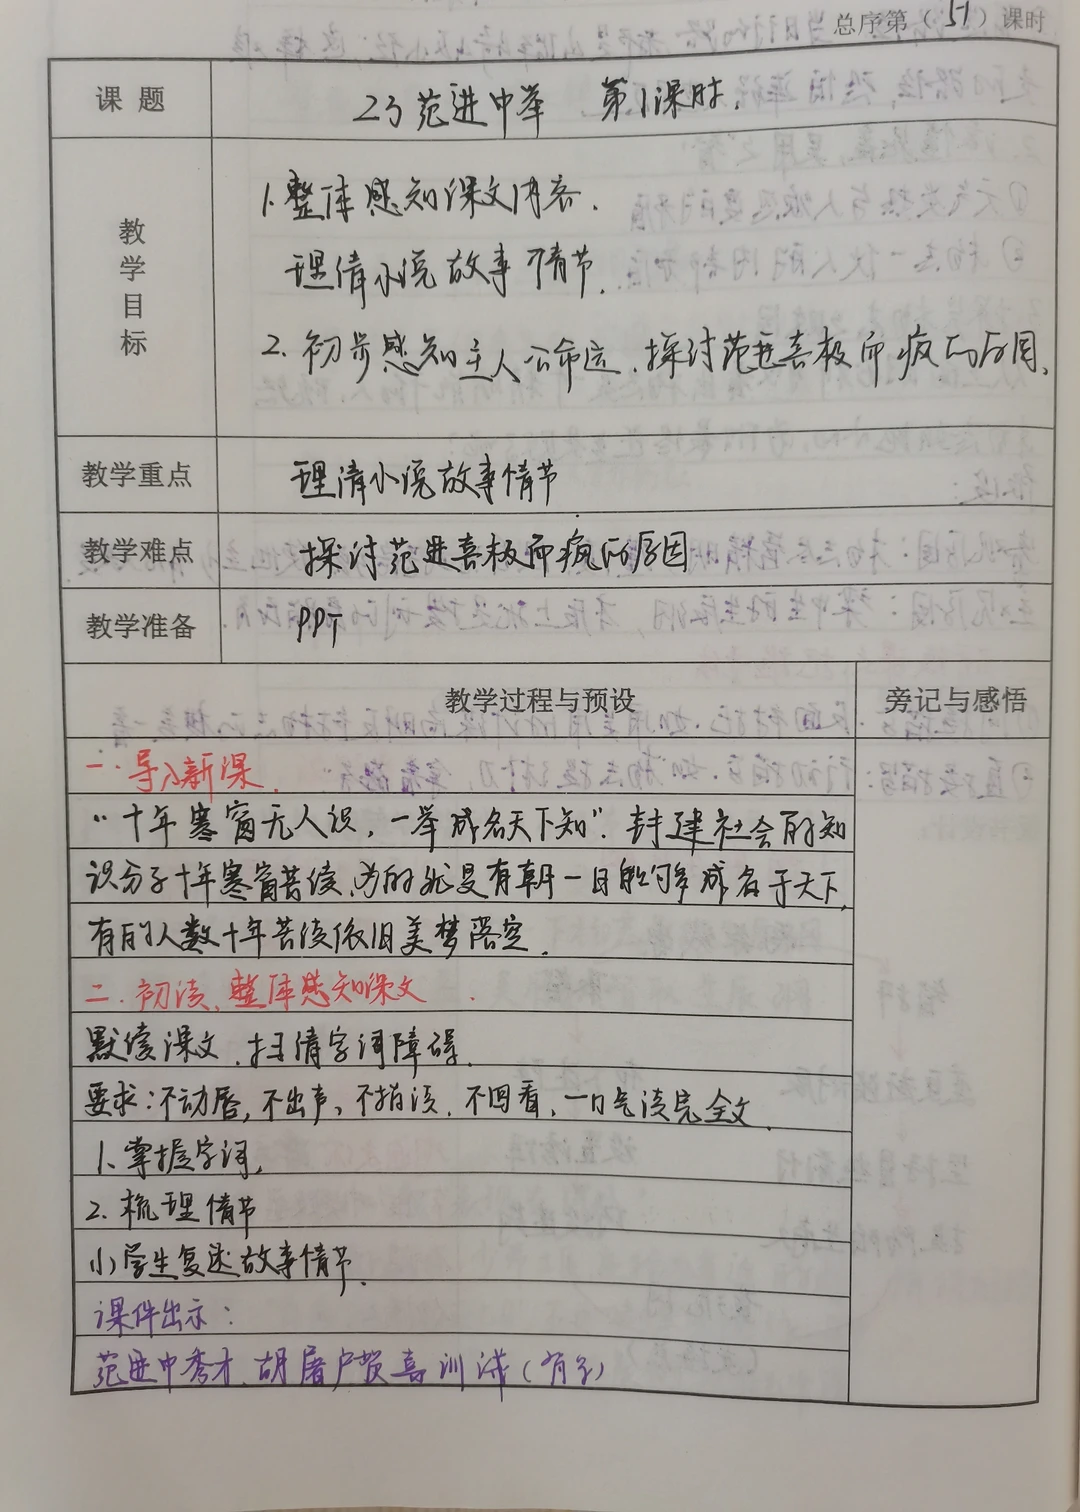 总序第（51）课时
课题
23 范进中举 第1课时.
教学目标
1.整体感知课文内容.
理清小说故事情节.
2.初步感知主人公命运.探讨范进喜极而疯的原因.
教学重点
理清小说故事情节
教学难点
探讨范进喜极而疯的原因
教学准备
PPT
教学过程与预设 旁记与感悟
一.导入新课.
“十年寒窗无人识,一举成名天下知”.封建社会的知
识分子十年寒窗苦读、为的就是有朝一日能够成名于天下,
有的人数十年苦读依旧美梦落空.
二.初读、整体感知课文.
默读课文.扫清字词障碍.
要求:不动唇,不出声、不指读.不回看,一口气读完全文.
1、掌握字词,
2.梳理情节
(1)学生复述故事情节.
课件出示:
范进中秀才.胡屠户贺喜训诫(有喜)